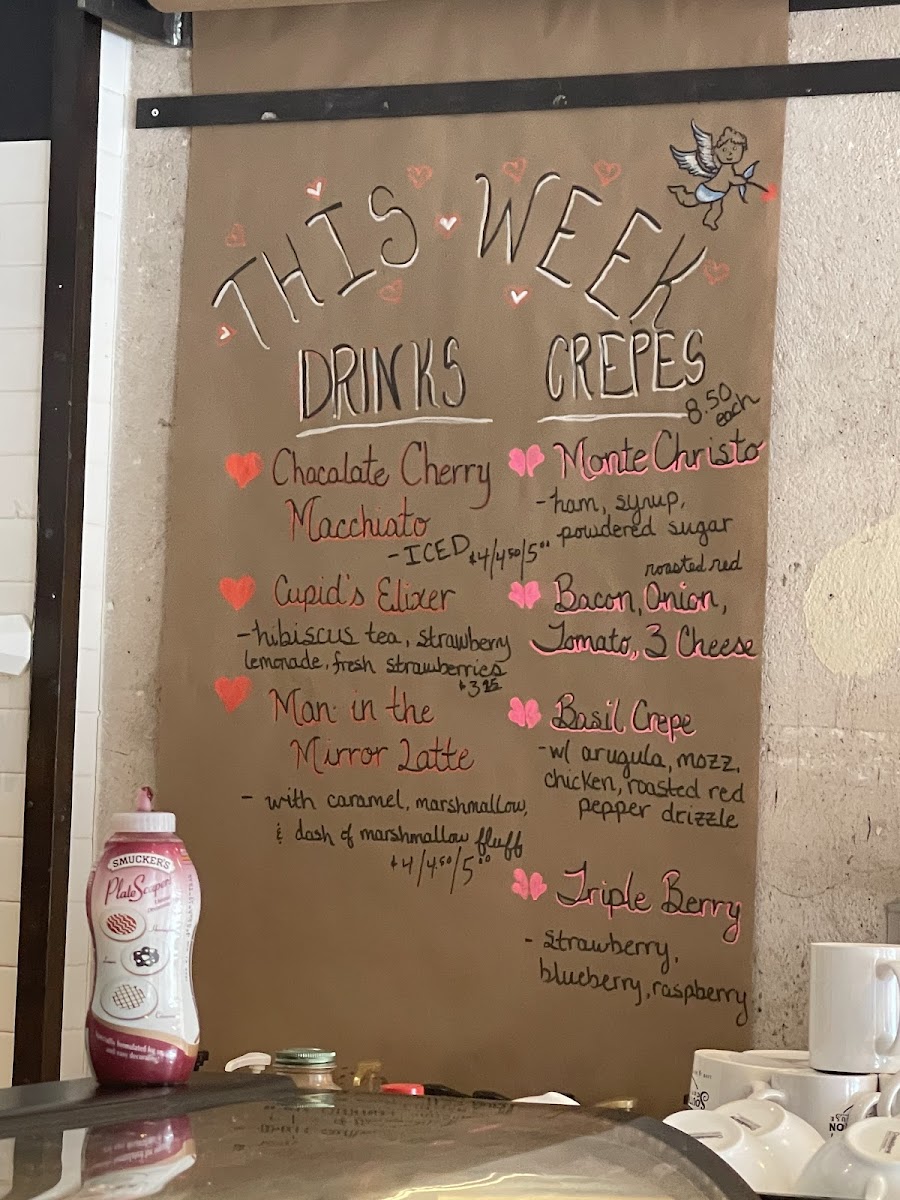 THIS WEEK
DRINKS
Chocalate Cherry
Macchiato
- ICED $4/4⁵⁰/5⁰⁰
Cupid's Elixer
- hibiscus tea, strawberry
lemonade, fresh strawberries
Man in the
Mirror Latte
- with caramel, marshmallow,
& dash of marshmallow fluff
$4/4⁵⁰/5⁰⁰
CREPES
8.50
each
Monte Christo
- ham, syrup,
powdered sugar
roasted red
Bacon, Onion,
Tomato, 3 Cheese
Basil Crepe
- w/ arugula, mozz,
chicken, roasted red
pepper drizzle
Triple Berry
- strawberry,
blueberry, raspberry
SMUCKER'S
PlateScapers